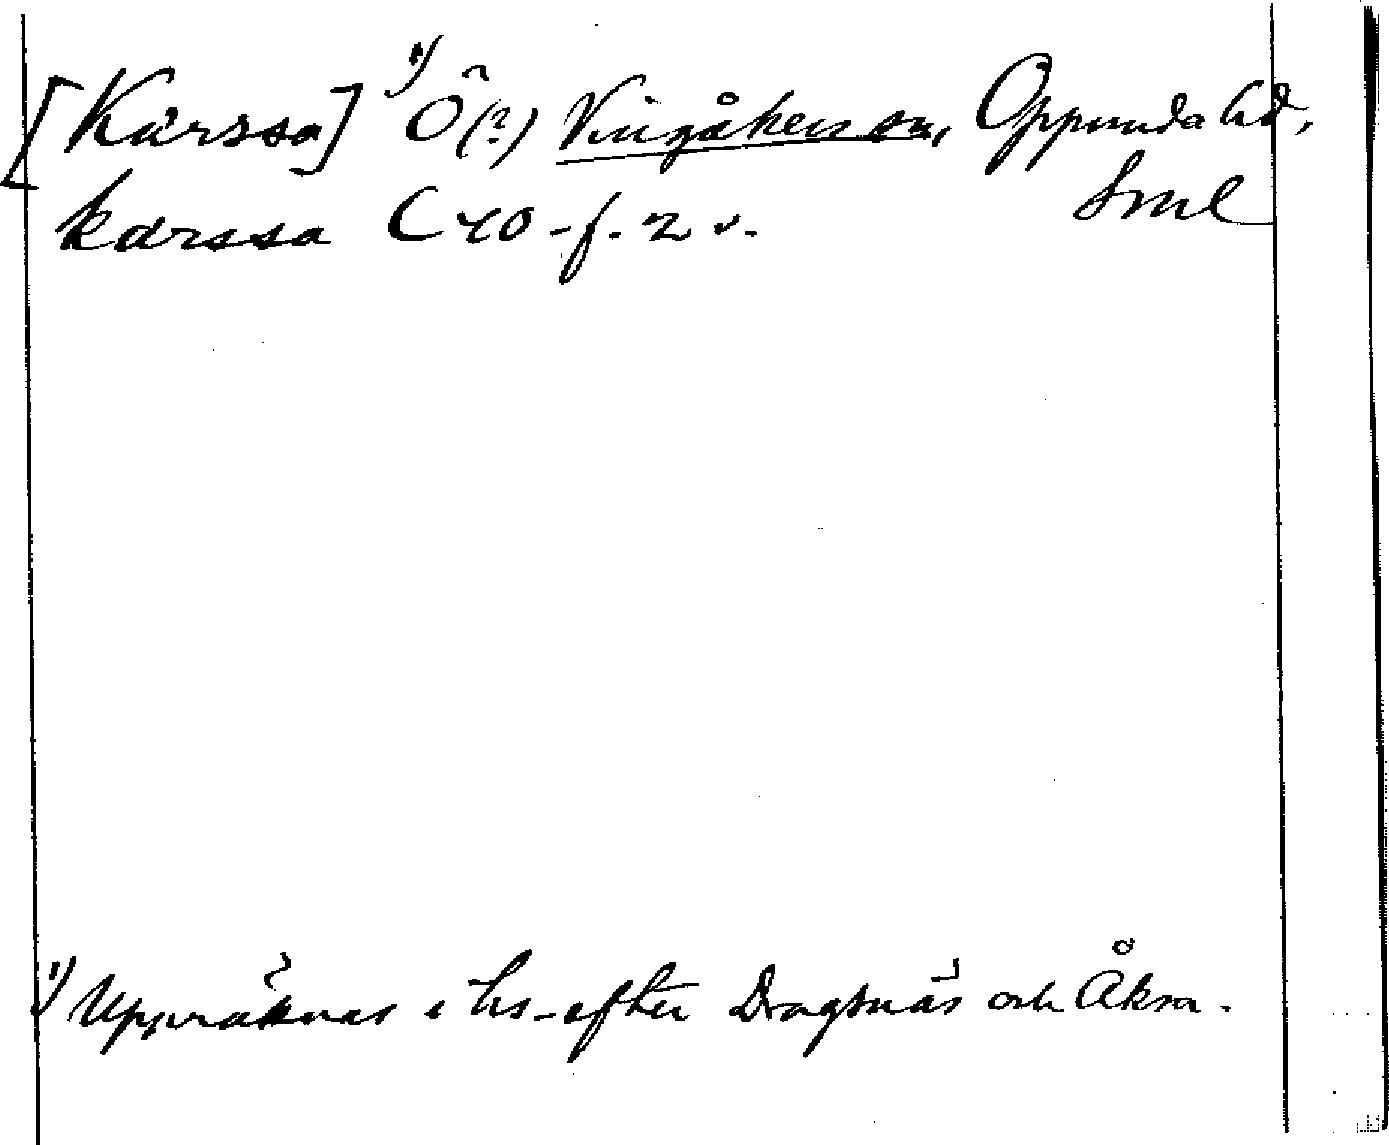 [Kärssa] 1) Ö(?) Vingåkers sn, Oppunda hd,
Sml
karssa C 40 f. 2 v.
1) Uppräknas i hs. efter Dragsnäs och Åksa.